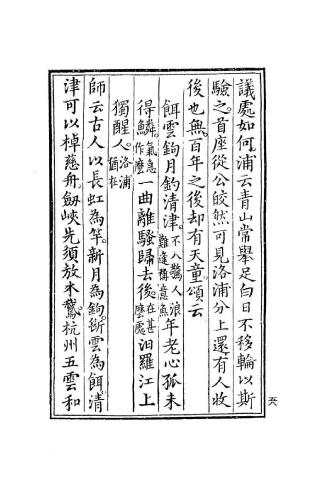 議處如何浦云青山常舉足白日不移輪以斯
驗之首座從公皎然可見洛浦分上還有人收
後也無百年之後却有天童頌云
餌雲鉤月釣清津。不入驚人浪難逢稱意魚年老心孤未
得鱗。氣急作麼一曲離騷歸去後。在甚麼處汨羅江上
獨醒人。洛浦猶在
師云古人以長虹為竿。新月為鉤。斷雲為餌。清
津可以棹慈舟。劍峽先須放木鵞。杭州五雲和